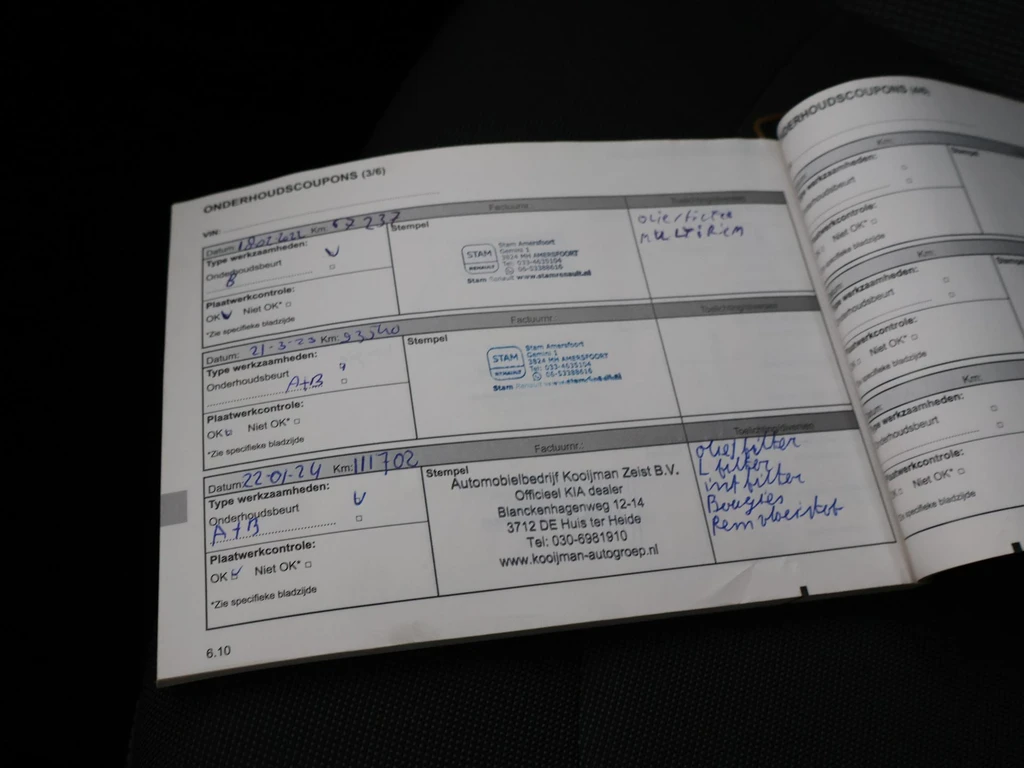 ONDERHOUDSCOUPONS (3/6)
VIN:
Datum: Km: 67 237 Factuurnr.:
Type werkzaamheden:
Onderhoudsbeurt
B
Plaatwerkcontrole:
OK Niet OK*
*Zie specifieke bladzijde
Stempel
STAM
RENAULT
Stam Amersfoort
Gemini 1
3824 MH AMERSFOORT
Tel: 033-4635104
06-53388616
Stam Renault www.stamrenault.nl
olie/filter
MULTIRIEM
Datum: 21-3-23 Km: 93,540 Factuurnr.: Toelichting/diversen
Type werkzaamheden:
Onderhoudsbeurt
A+B
Plaatwerkcontrole:
OK Niet OK*
*Zie specifieke bladzijde
Stempel
STAM
RENAULT
Stam Amersfoort
Gemini 1
3824 MH AMERSFOORT
Tel: 033-4635104
06-53388616
Datum: 22-01-24 Km: 111702 Factuurnr.: Toelichting/diversen
Type werkzaamheden:
Onderhoudsbeurt
A+B
Plaatwerkcontrole:
OK Niet OK*
*Zie specifieke bladzijde
Stempel
Automobielbedrijf Kooijman Zeist B.V.
Officieel KIA dealer
Blanckenhagenweg 12-14
3712 DE Huis ter Heide
Tel: 030-6981910
www.kooijman-autogroep.nl
olie/filter
L filter
int filter
Bougies
Remvloeistof
6.10
ONDERHOUDSCOUPONS (4/6)
Km:
Stempel
werkzaamheden:
Niet OK*
specifieke bladzijde
Km:
werkzaamheden:
Niet OK*
specifieke bladzijde
Km:
werkzaamheden:
Niet OK*
specifieke bladzijde